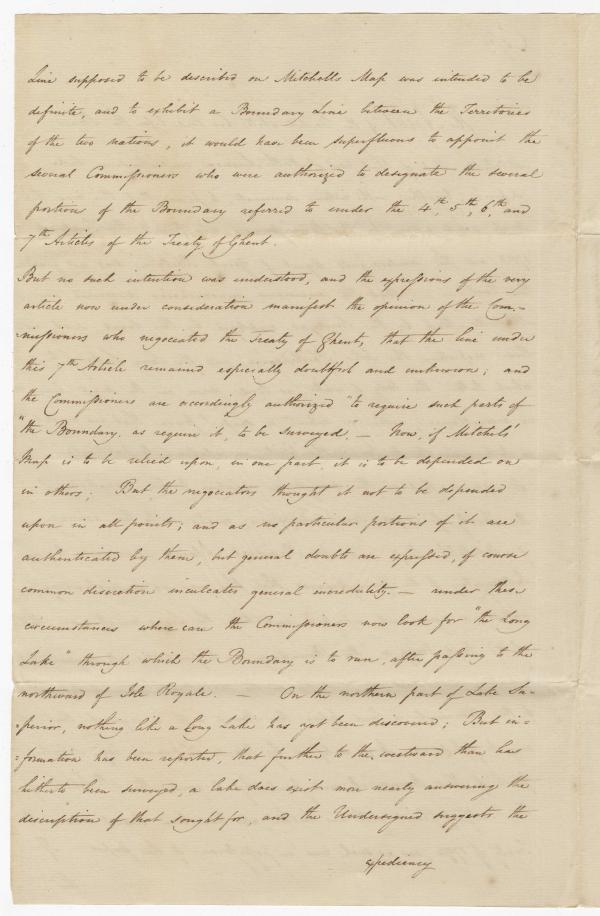 Line supposed to be described on Mitchells Map was intended to be
definite, and to exhibit a Boundary Line between the Territories
of the two nations, it would have been superfluous to appoint the
several Commissioners who were authorized to designate the several
portion of the Boundary referred to under the 4th, 5th, 6th, and
7th Articles of the Treaty of Ghent.
But no such intention was understood, and the expressions of the very
article now under consideration manifest the opinion of the Com.-
missioners who negociated the Treaty of Ghent, that the line under
this 7th Article remained especially doubtful and unknown; and
the Commissioners are accordingly authorized "to require such parts of
"the Boundary, as require it, to be surveyed". — Now, if Mitchels'
Map is to be relied upon, in one part, it is to be depended on
in others; But the negociators thought it not to be depended
upon in all points; and as no particular portions of it are
authenticated by them, but general doubts are expressed, of course
common discretion inculcates general incredulity. — under these
circumstances where can the Commissioners now look for "the Long
Lake" through which the Boundary is to run, after passing to the
northward of Isle Royale. — On the northern part of Lake Su-
-perior, nothing like a Long Lake has yet been discovered; But in=
=formation has been reported, that further to the westward than has
hitherto been surveyed, a lake does exist more nearly answering the
discription of that sought for, and the Undersigned suggests the
expediency